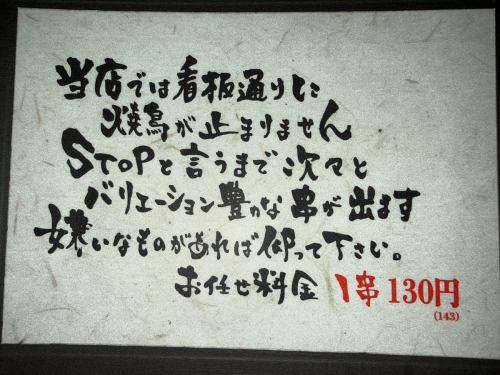 当店では看板通りに
焼鳥が止まりません
STOPと言うまで次々と
バリエーション豊かな串が出ます
嫌いなものがあれば仰って下さい。
お任せ料金 1串 130円
(143)